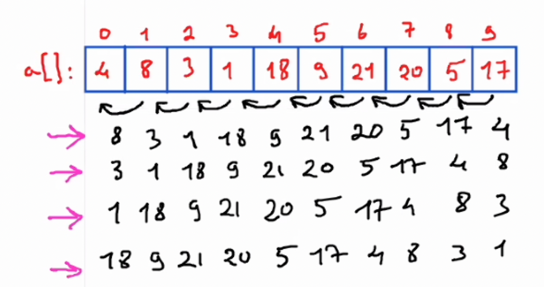 0 1 2 3 4 5 6 7 8 9
a[]: 4 8 3 1 18 9 21 20 5 17
8 3 1 18 9 21 20 5 17 4
3 1 18 9 21 20 5 17 4 8
1 18 9 21 20 5 17 4 8 3
18 9 21 20 5 17 4 8 3 1